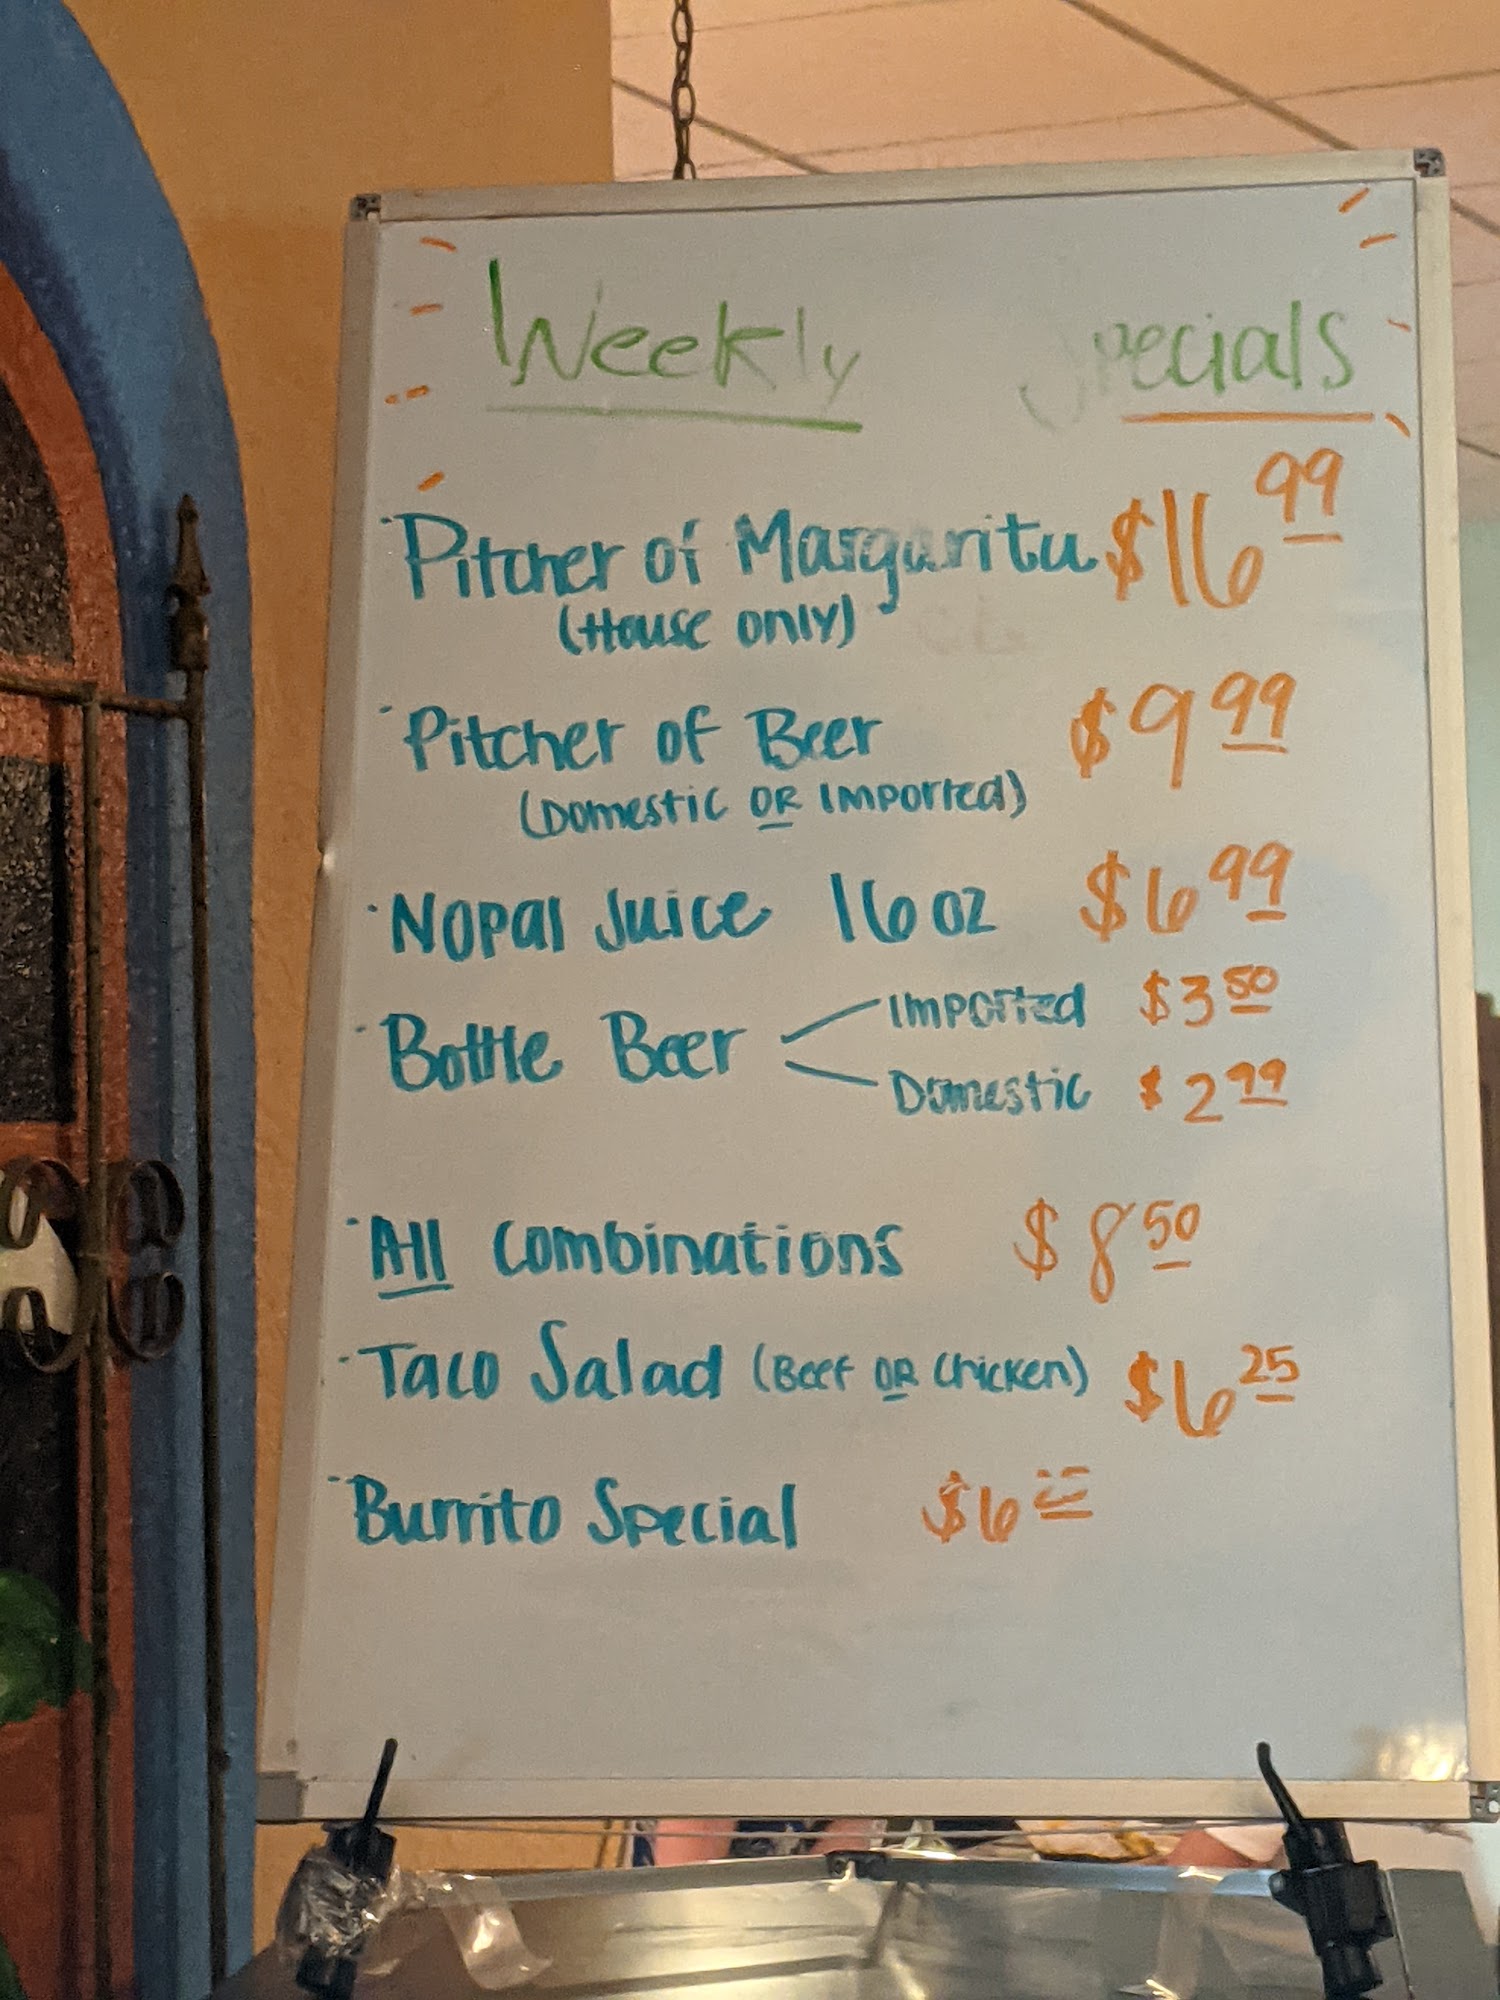 Weekly Specials
Pitcher of Margarita $16 99
(House only)
Pitcher of Beer $9 99
(Domestic OR Imported)
Nopal Juice 16 oz $6 99
Bottle Beer Imported $3 50
Domestic $2 99
All Combinations $8 50
Taco Salad (Beef OR Chicken) $6 25
Burrito Special $6